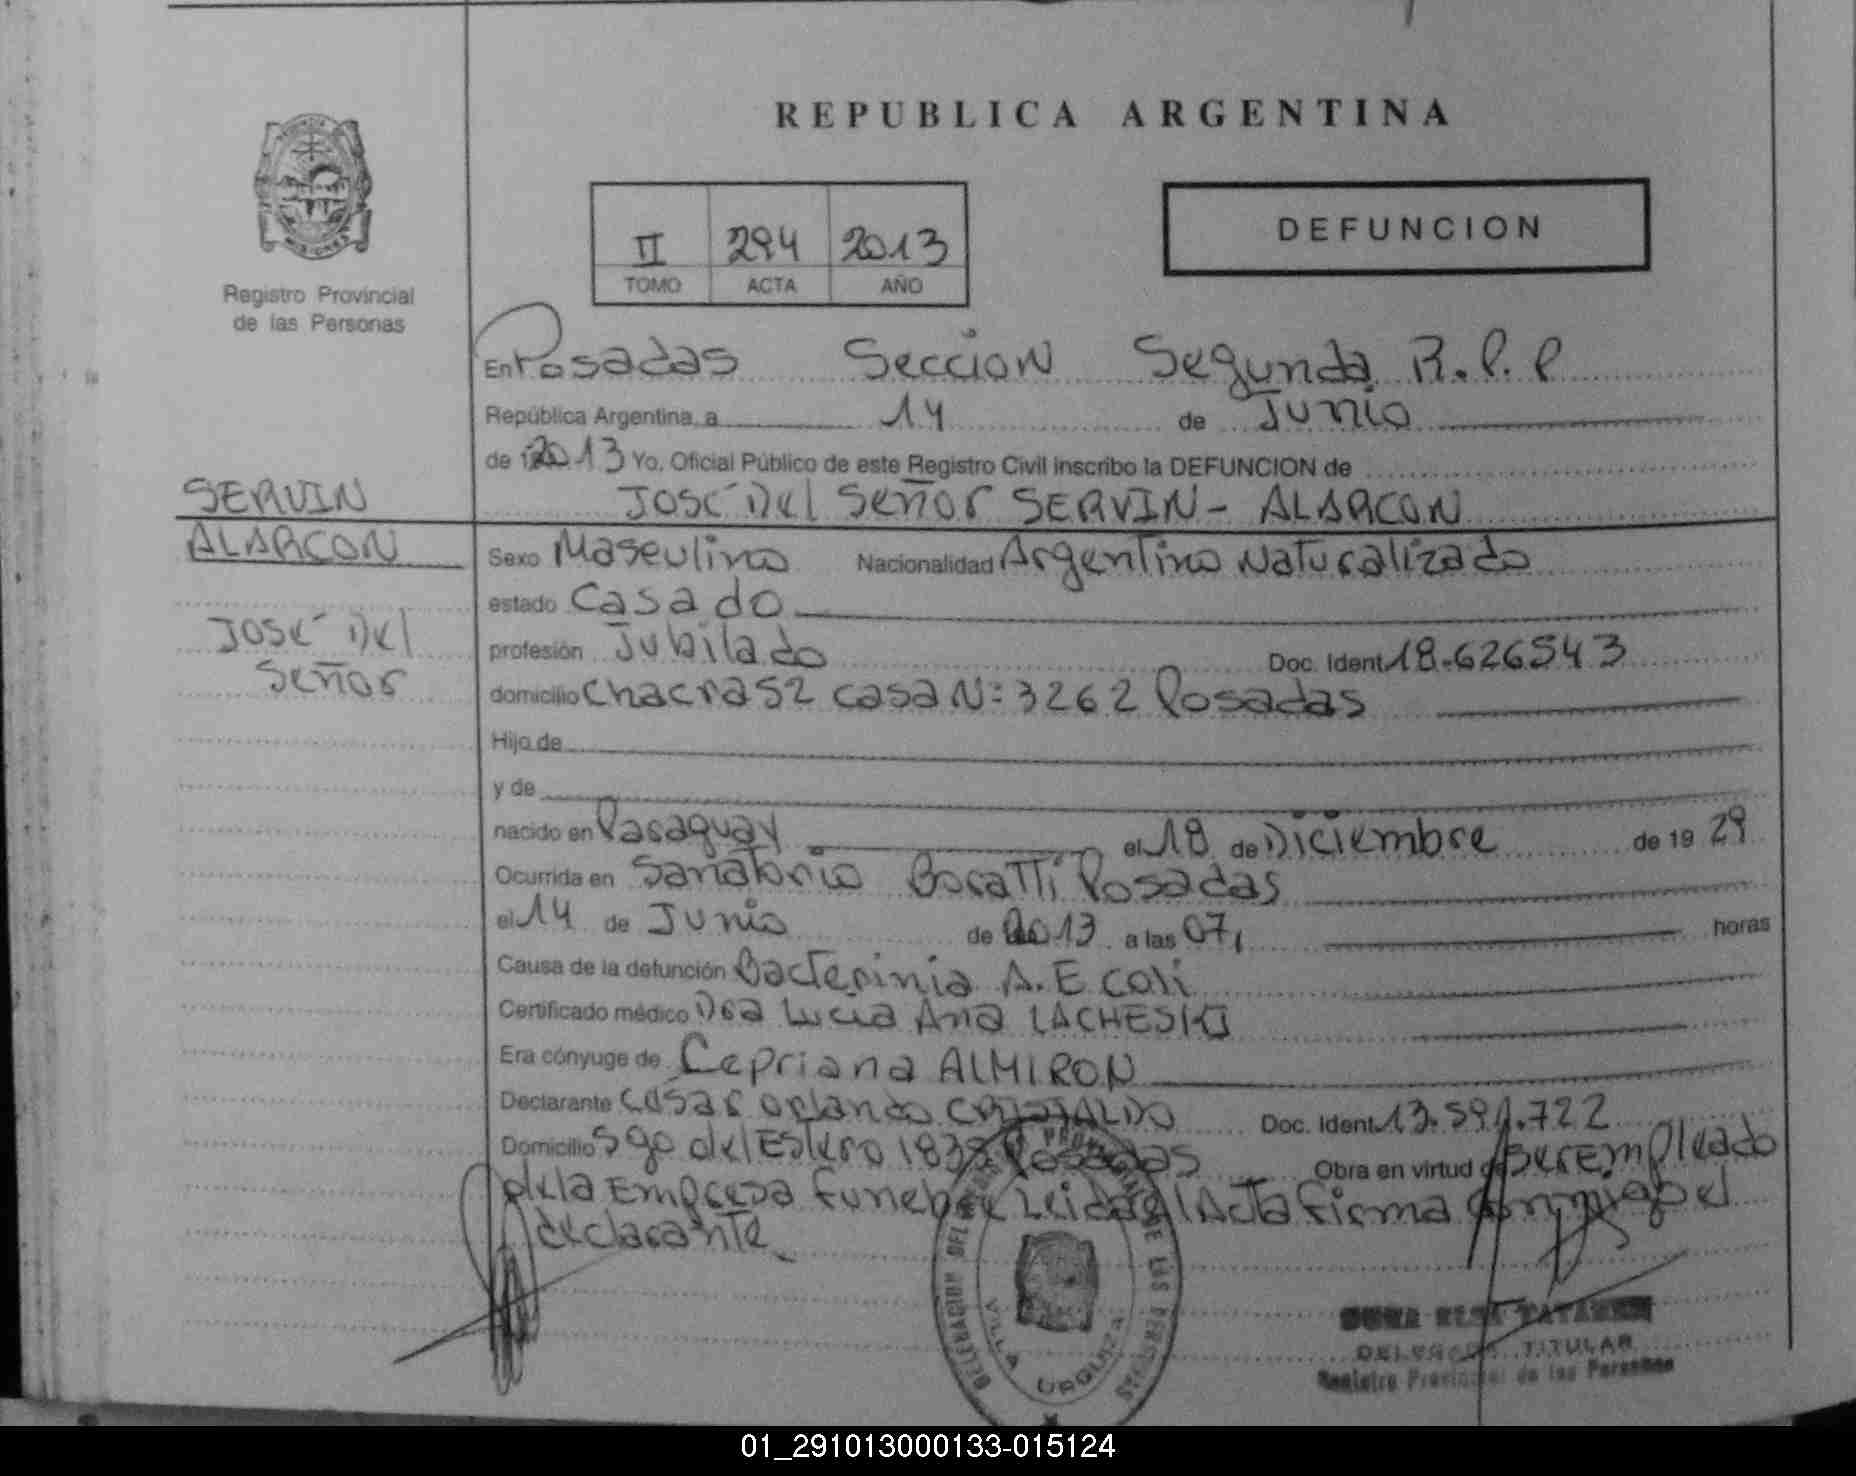 REPUBLICA ARGENTINA
DEFUNCION
II 294 2013
TOMO ACTA AÑO
MISIONES
Registro Provincial
de las Personas
En Posadas Seccion Segunda R.P.P
República Argentina, a 14 de Junio
de 2013 Yo, Oficial Público de este Registro Civil inscribo la DEFUNCION de
SERVIN
JOSÉ Del Señor SERVIN - ALARCON
ALARCON
JOSÉ Del
Señor
Sexo Masculino Nacionalidad Argentino Naturalizado
estado Casado
profesión Jubilado Doc. Ident 18.626543
domicilio Chacra 52 casa N: 3262 Posadas
Hijo de
y de
nacido en Paraguay el 18 de Diciembre de 19 29
Ocurrida en Sanatorio Boratti Posadas
el 14 de Junio de 2013 a las 07, horas
Causa de la defunción Bacterinia A. E coli
Certificado médico Dra Lucia Ana LACHESKI
Era cónyuge de Cepriana ALMIRON
Declarante Cesar orlando CRISTALDO Doc. Ident 13.591.722
Domicilio Sgo del Estero 1838 Posadas Obra en virtud de Ser Empleado
de la Empresa Funebre Leida el Acta Firma conmigo el
declarante
DELEGACION DEL REGISTRO PROVINCIAL DE LAS PERSONAS
VILLA URQUIZA
DELEGADA TITULAR
Registro Provincial de las Personas
01_291013000133-015124